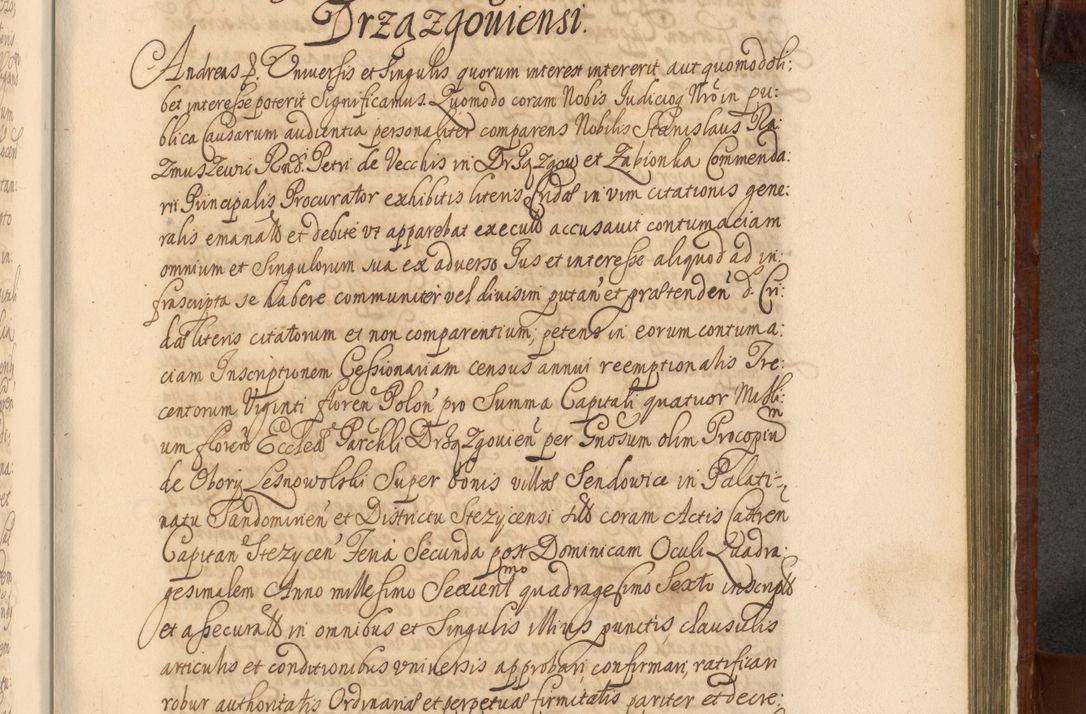 Drzążgouiensi.
Andreas &. Vniuersis et Singulis quorum interest intererit aut quomodoli:
bet interesse poterit Significamus. Quomodo coram Nobis Iudicioq Nro in pu:
blica Causarum audientia personaliter comparens Nobilis Stanislaus Ra:
zmuszewic Rnd. Petri de Vecchis in Drązgow et Zabionka Commenda:
rii Principalis Procurator exhibitis literis Cridae in vim citationis gene:
ralis emanatt et debite vt apparebat execut accusauit contumaciam
omnium et Singulorum sua ex aduerso Ius et interesse aliquod ad in:
frascripta se habere communiter vel diuisim putan et praetenden d. Cri:
dae literis citatorum et non comparentium, petens in eorum contuma:
ciam Inscriptionem Cessionariam census annui reemptionalis Tre:
centorum Viginti floren Polon pro Summa Capitali quatuor Milli:
um floren Ecclae Parchli Drązgouien per Gnosum olim Procopium
de Obory Lesnowolski Super bonis villae Sendowice in Palati:
natu Sandomirien et Districtu Stezycensi sitt coram Actis Castren
Capitan Stezycen Feria Secunda post Dominicam Oculi Quadra:
gesimalem Anno millesimo Sexcent^mo quadragesimo Sexto inscriptt
et assecuratt in omnibus et Singulis illius punctis clausulis
articulis et conditionibus vniuersis approbari, confirmari, ratificari
robur authoritatis Ordinariae et perpetuae firmitatis pariter et decre: